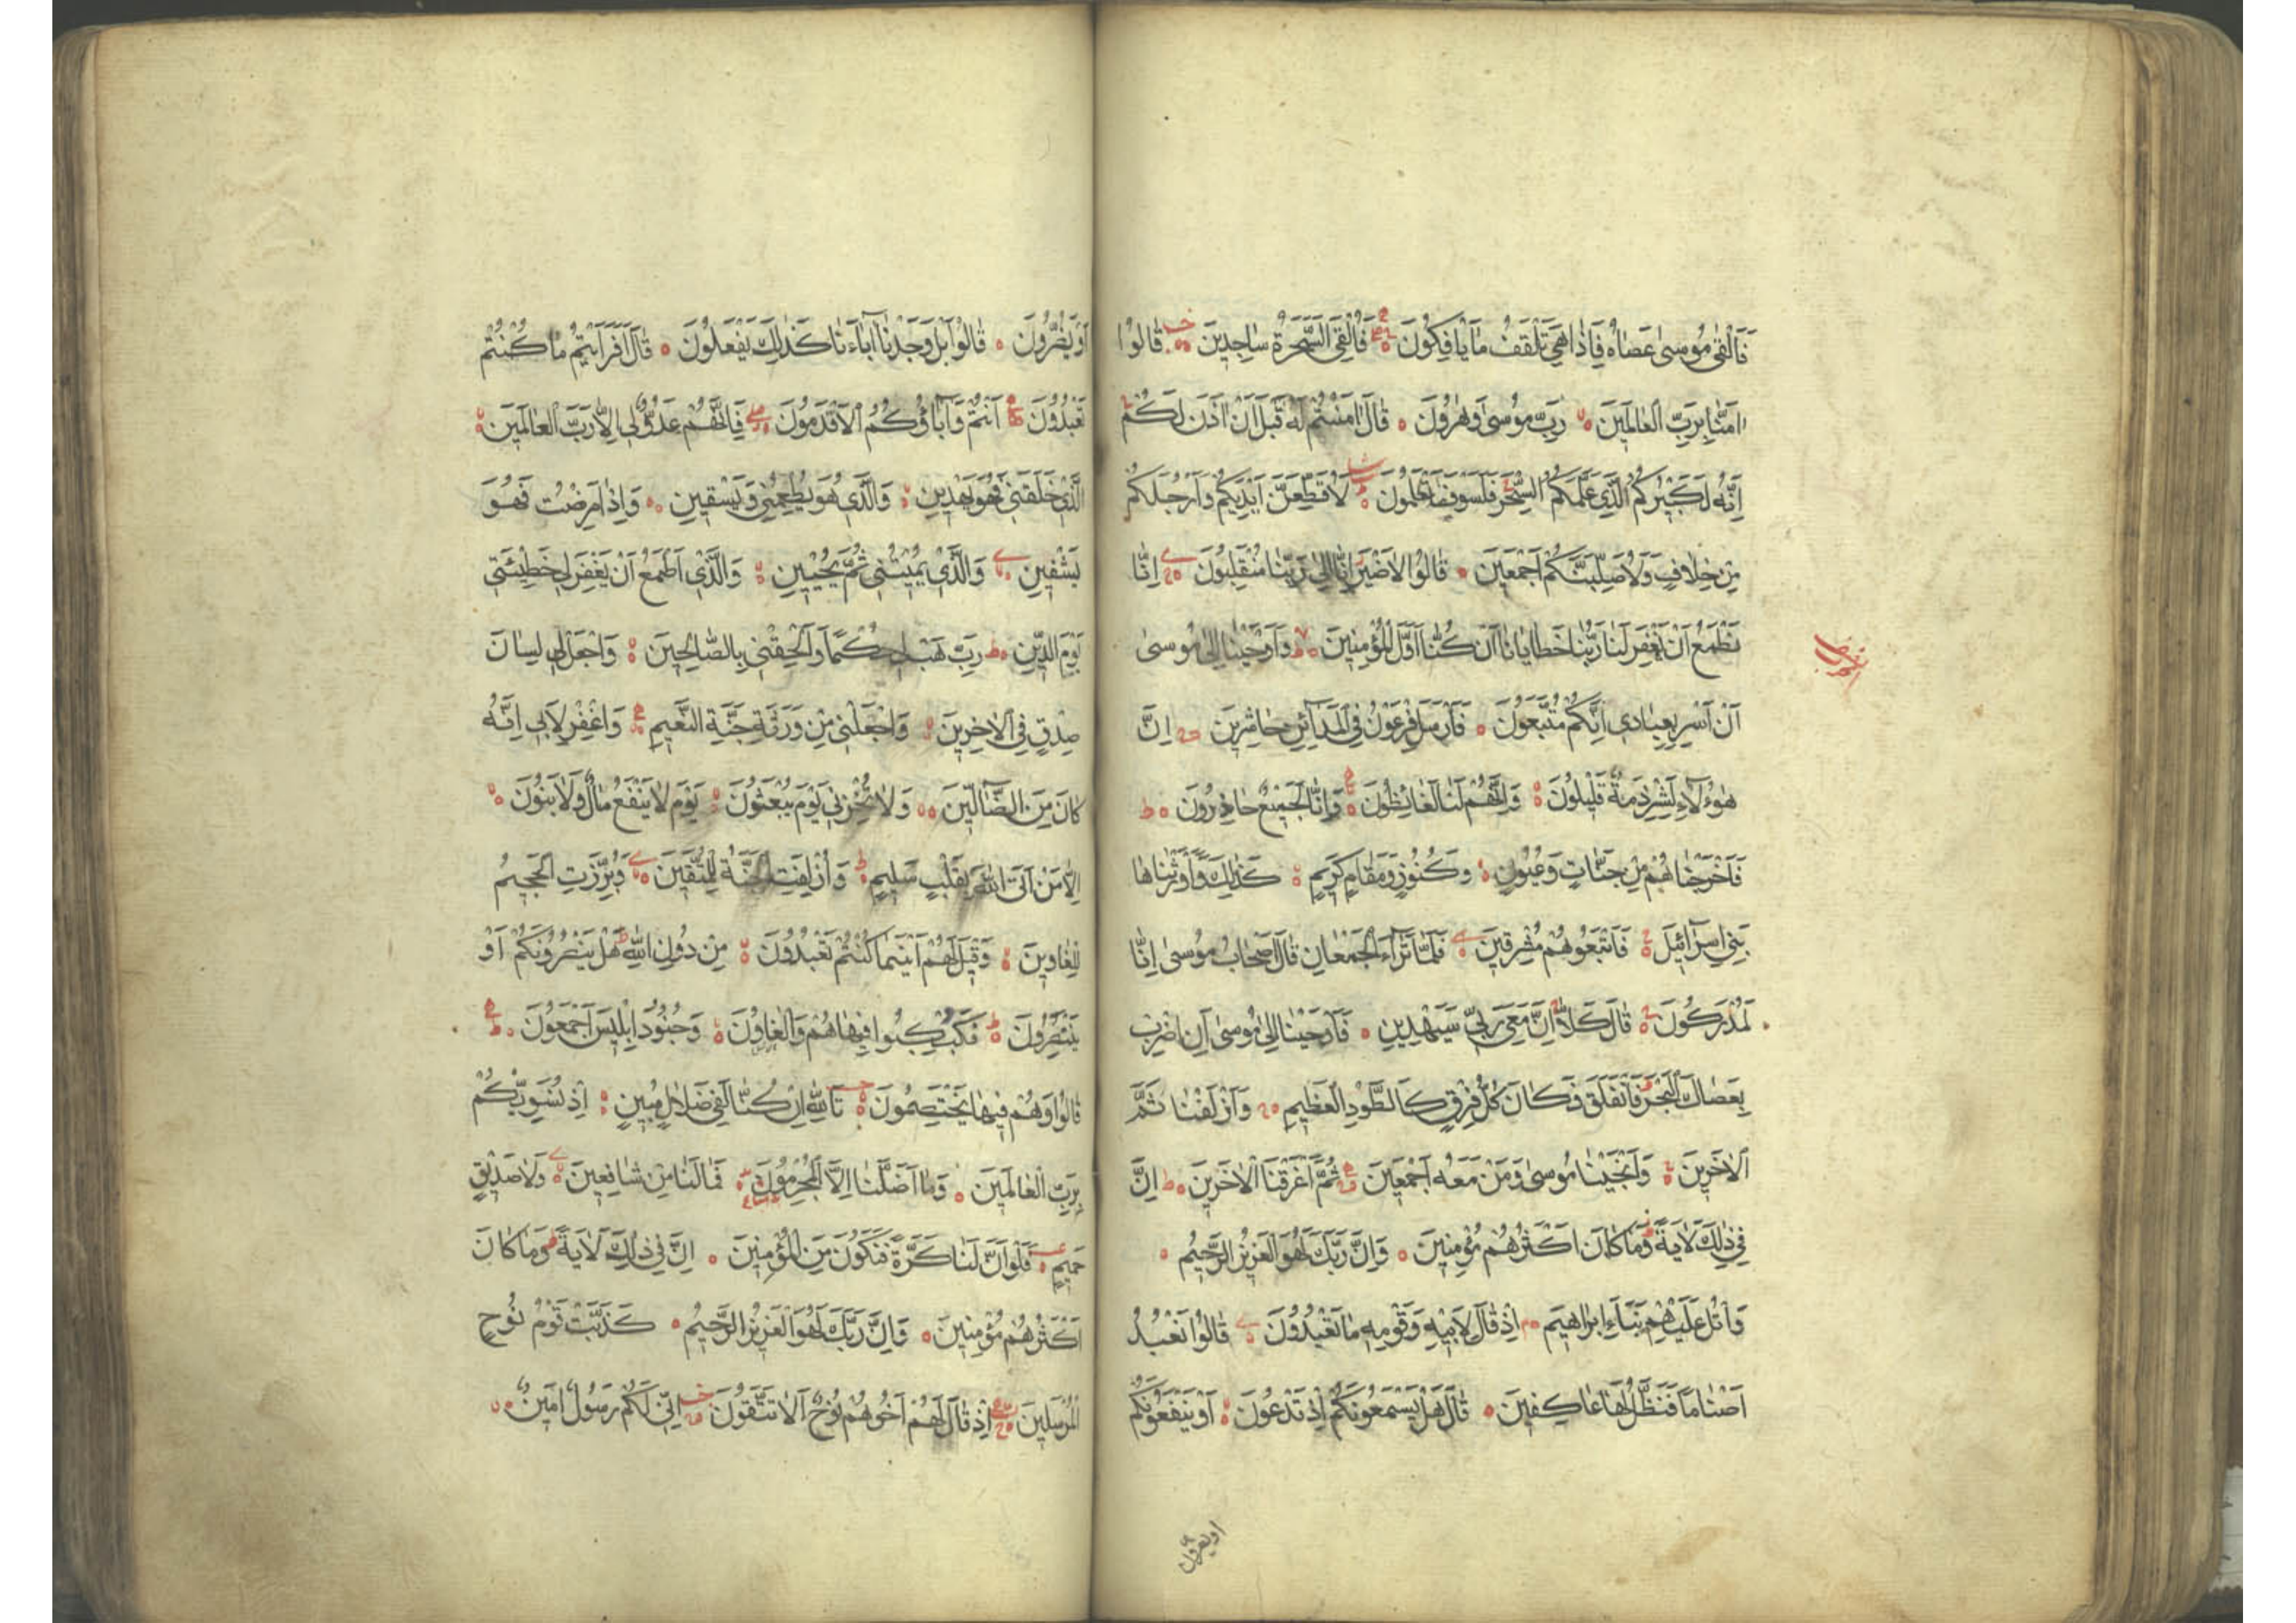 فَاَلْقٰى مُوسٰى عَصَاهُ فَاِذَا هِىَ تَلْقَفُ مَا يَأفِكُونَ فَاُلْقِىَ السَّحَرَةُ سَاجِدِينَ قَالُوا
اٰمَنَّا بِرَبِّ الْعَالَمِينَ رَبِّ مُوسٰى وَهٰرُونَ قَالَ اٰمَنْتُمْ لَهُ قَبْلَ اَنْ اٰذَنَ لَكُمْ
اِنَّهُ لَكَبِيْرُكُمُ الَّذِى عَلَّمَكُمُ السِّحْرَ فَلَسَوْفَ تَعْلَمُونَ لَاُقَطِّعَنَّ اَيْدِيَكُمْ وَاَرْجُلَكُمْ
مِنْ خِلَافٍ وَلَاُصَلِّبَنَّكُمْ اَجْمَعِينَ قَالُوا لَاضَيْرَ اِنَّا اِلٰى رَبِّنَا مُنْقَلِبُونَ اِنَّا
نَطْمَعُ اَنْ يَغْفِرَ لَنَا رَبُّنَا خَطَايَانَا اَنْ كُنَّا اَوَّلَ الْمُؤْمِنِينَ وَاَوْحَيْنَا اِلٰى مُوسٰى
اَنْ اَسْرِ بِعِبَادِى اِنَّكُمْ مُتَّبَعُونَ فَاَرْسَلَ فِرْعَوْنُ فِى الْمَدَآئِنِ حَاشِرِينَ اِنَّ
هٰؤُلَآءِ لَشِرْذِمَةٌ قَلِيلُونَ وَاِنَّهُمْ لَنَا لَغَائِظُونَ وَاِنَّا لَجَمِيْعٌ حَاذِرُونَ
فَاَخْرَجْنَاهُمْ مِنْ جَنَّاتٍ وَعُيُونٍ وَكُنُوزٍ وَمَقَامٍ كَرِيمٍ كَذٰلِكَ وَاَوْرَثْنَاهَا
بَنِى اِسْرَآئِيلَ فَاَتْبَعُوهُمْ مُشْرِقِينَ فَلَمَّا تَرَآءَ الْجَمْعَانِ قَالَ اَصْحَابُ مُوسٰى اِنَّا
لَمُدْرَكُونَ قَالَ كَلَّا اِنَّ مَعِىَ رَبِّى سَيَهْدِينِ فَاَوْحَيْنَا اِلٰى مُوسٰى اَنِ اضْرِبْ
بِعَصَاكَ الْبَحْرَ فَانْفَلَقَ فَكَانَ كُلُّ فِرْقٍ كَالطَّوْدِ الْعَظِيمِ وَاَزْلَفْنَا ثَمَّ
الْاٰخَرِينَ وَاَنْجَيْنَا مُوسٰى وَمَنْ مَعَهُ اَجْمَعِينَ ثُمَّ اَغْرَقْنَا الْاٰخَرِينَ اِنَّ
فِى ذٰلِكَ لَاٰيَةً وَمَا كَانَ اَكْثَرُهُمْ مُؤْمِنِينَ وَاِنَّ رَبَّكَ لَهُوَ الْعَزِيزُ الرَّحِيمُ
وَاتْلُ عَلَيْهِمْ نَبَاَءَ اِبْرَاهِيمَ اِذْ قَالَ لِاَبِيهِ وَقَوْمِهِ مَا تَعْبُدُونَ قَالُوا نَعْبُدُ
اَصْنَامًا فَنَظَلُّ لَهَا عَاكِفِينَ قَالَ هَلْ يَسْمَعُونَكُمْ اِذْ تَدْعُونَ اَوْ يَنْفَعُونَكُمْ
اويضرون
اَوْ يَضُرُّونَ قَالُوا بَلْ وَجَدْنَا اٰبَآءَنَا كَذٰلِكَ يَفْعَلُونَ قَالَ اَفَرَاَيْتُمْ مَا كُنْتُمْ
تَعْبُدُونَ اَنْتُمْ وَاٰبَاؤُكُمُ الْاَقْدَمُونَ فَاِنَّهُمْ عَدُوٌّ لِى اِلَّا رَبَّ الْعَالَمِينَ
الَّذِى خَلَقَنِى فَهُوَ يَهْدِينِ وَالَّذِى هُوَ يُطْعِمُنِى وَيَسْقِينِ وَاِذَا مَرِضْتُ فَهُوَ
يَشْفِينِ وَالَّذِى يُمِيتُنِى ثُمَّ يُحْيِينِ وَالَّذِى اَطْمَعُ اَنْ يَغْفِرَ لِى خَطِيْئَتِى
يَوْمَ الدِّينِ رَبِّ هَبْ لِى حُكْمًا وَاَلْحِقْنِى بِالصَّالِحِينَ وَاجْعَلْ لِى لِسَانَ
صِدْقٍ فِى الْاٰخِرِينَ وَاجْعَلْنِى مِنْ وَرَثَةِ جَنَّةِ النَّعِيمِ وَاغْفِرْ لِاَبِى اِنَّهُ
كَانَ مِنَ الضَّآلِّينَ وَلَا تُخْزِنِى يَوْمَ يُبْعَثُونَ يَوْمَ لَا يَنْفَعُ مَالٌ وَلَا بَنُونَ
اِلَّا مَنْ اَتَى اللّٰهَ بِقَلْبٍ سَلِيمٍ وَاُزْلِفَتِ الْجَنَّةُ لِلْمُتَّقِينَ وَبُرِّزَتِ الْجَحِيمُ
لِلْغَاوِينَ وَقِيلَ لَهُمْ اَيْنَمَا كُنْتُمْ تَعْبُدُونَ مِنْ دُونِ اللّٰهِ هَلْ يَنْصُرُونَكُمْ اَوْ
يَنْتَصِرُونَ فَكُبْكِبُوا فِيهَا هُمْ وَالْغَاوُنَ وَجُنُودُ اِبْلِيسَ اَجْمَعُونَ
قَالُوا وَهُمْ فِيهَا يَخْتَصِمُونَ تَاللّٰهِ اِنْ كُنَّا لَفِى ضَلَالٍ مُبِينٍ اِذْ نُسَوِّيكُمْ
بِرَبِّ الْعَالَمِينَ وَمَا اَضَلَّنَا اِلَّا الْمُجْرِمُونَ فَمَا لَنَا مِنْ شَافِعِينَ وَلَا صَدِيقٍ
حَمِيمٍ فَلَوْ اَنَّ لَنَا كَرَّةً فَنَكُونَ مِنَ الْمُؤْمِنِينَ اِنَّ فِى ذٰلِكَ لَاٰيَةً وَمَا كَانَ
اَكْثَرُهُمْ مُؤْمِنِينَ وَاِنَّ رَبَّكَ لَهُوَ الْعَزِيزُ الرَّحِيمُ كَذَّبَتْ قَوْمُ نُوحٍ
الْمُرْسَلِينَ اِذْ قَالَ لَهُمْ اَخُوهُمْ نُوحٌ اَلَا تَتَّقُونَ اِنِّى لَكُمْ رَسُولٌ اَمِينٌ